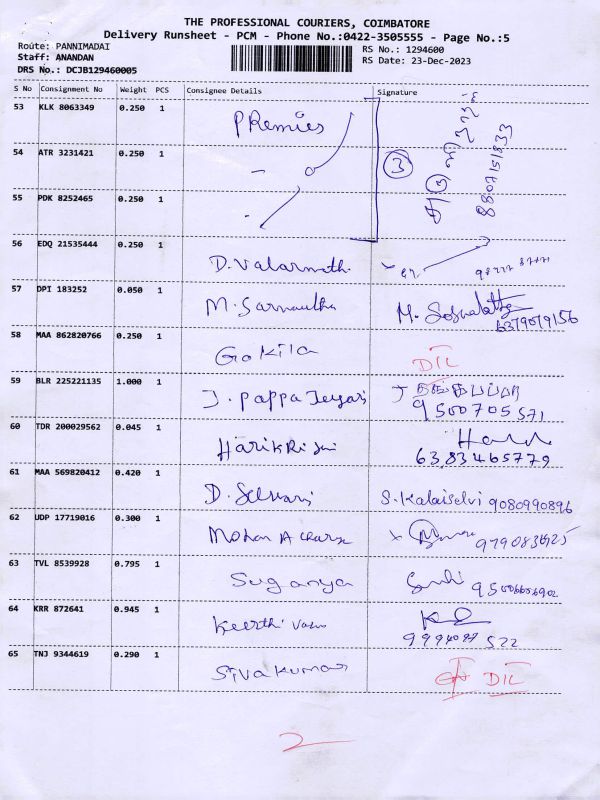 THE PROFESSIONAL COURIERS, COIMBATORE
Delivery Runsheet - PCM - Phone No.:0422-3505555 - Page No.:5
Route: PANNIMADAI
RS No.: 1294600
Staff: ANANDAN
RS Date: 23-Dec-2023
DRS No.: DCJB129460005
S No Consignment No Weight PCS Consignee Details Signature
53 KLK 8063349 0.250 1 PRemies
8807151833
54 ATR 3231421 0.250 1 3
55 PDK 8252465 0.250 1
56 EDQ 21535444 0.250 1 D. Valarmath
57 DPI 183252 0.050 1 M.
6379079156
58 MAA 862820766 0.250 1 Gokila DIL
59 BLR 225221135 1.000 1 J. Pappa
9500705571
60 TDR 200029562 0.045 1
6383465779
61 MAA 569820412 0.420 1 D. Selvari S. Kalaiselvi 9080990896
62 UDP 17719016 0.300 1 Mohan
63 TVL 8539928 0.795 1 Suganya
64 KRR 872641 0.945 1 Keerthi
65 TNJ 9344619 0.290 1 Sivakumar DIL
2